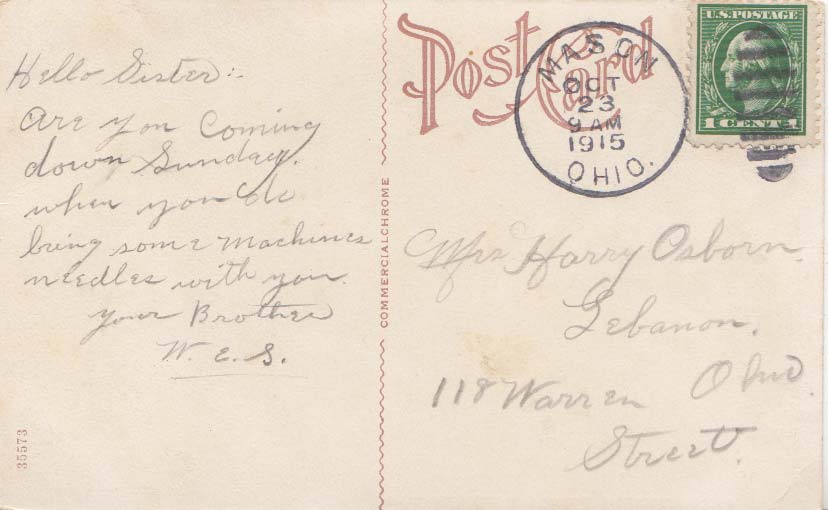 Hello Sister:-
are you coming
down Sunday.
when you do
bring some machines
needles with you.
your Brother
W. E. S.
35573
COMMERCIALCHROME
Post Card
MASON
OCT
23
9 AM
1915
OHIO.
U.S. POSTAGE
1 CENT 1
Mrs Harry Osborn.
Lebanon.
Ohio.
118 Warren
Street.